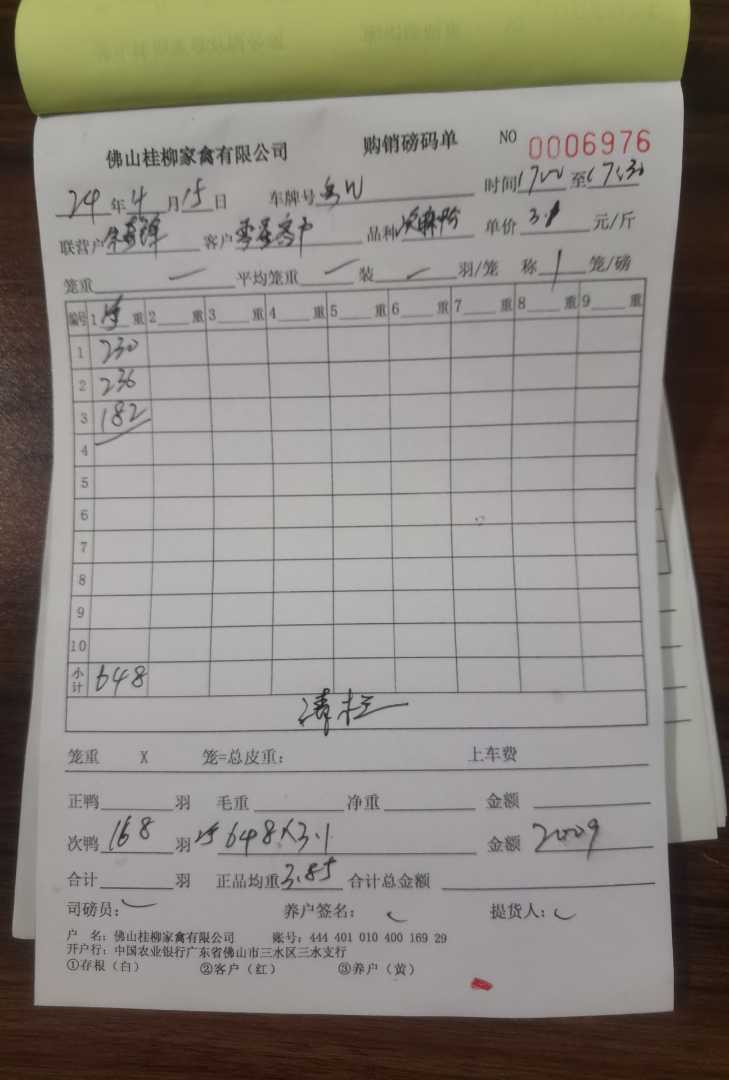 佛山桂柳家禽有限公司 购销磅码单 NO 0006976
24年4月15日 车牌号 粤W 时间1700至1730
联营户 客户 零星客户 品种 单价 3.1 元/斤
笼重 一 平均笼重 一 装 羽/笼 称 1 笼/磅
编号 1 净 重 2 重 3 重 4 重 5 重 6 重 7 重 8 重 9 重
1 230
2 236
3 182
4
5
6
7
8
9
10
小计 648
清栏
笼重 X 笼=总皮重: 上车费
正鸭 羽 毛重 净重 金额
次鸭 168 羽 净 648×3.1 金额 2009
合计 羽 正品均重 3.85 合计总金额
司磅员: 养户签名: 提货人:
户 名: 佛山桂柳家禽有限公司 账号: 444 401 010 400 169 29
开户行: 中国农业银行广东省佛山市三水区三水支行
①存根（白） ②客户（红） ③养户（黄）